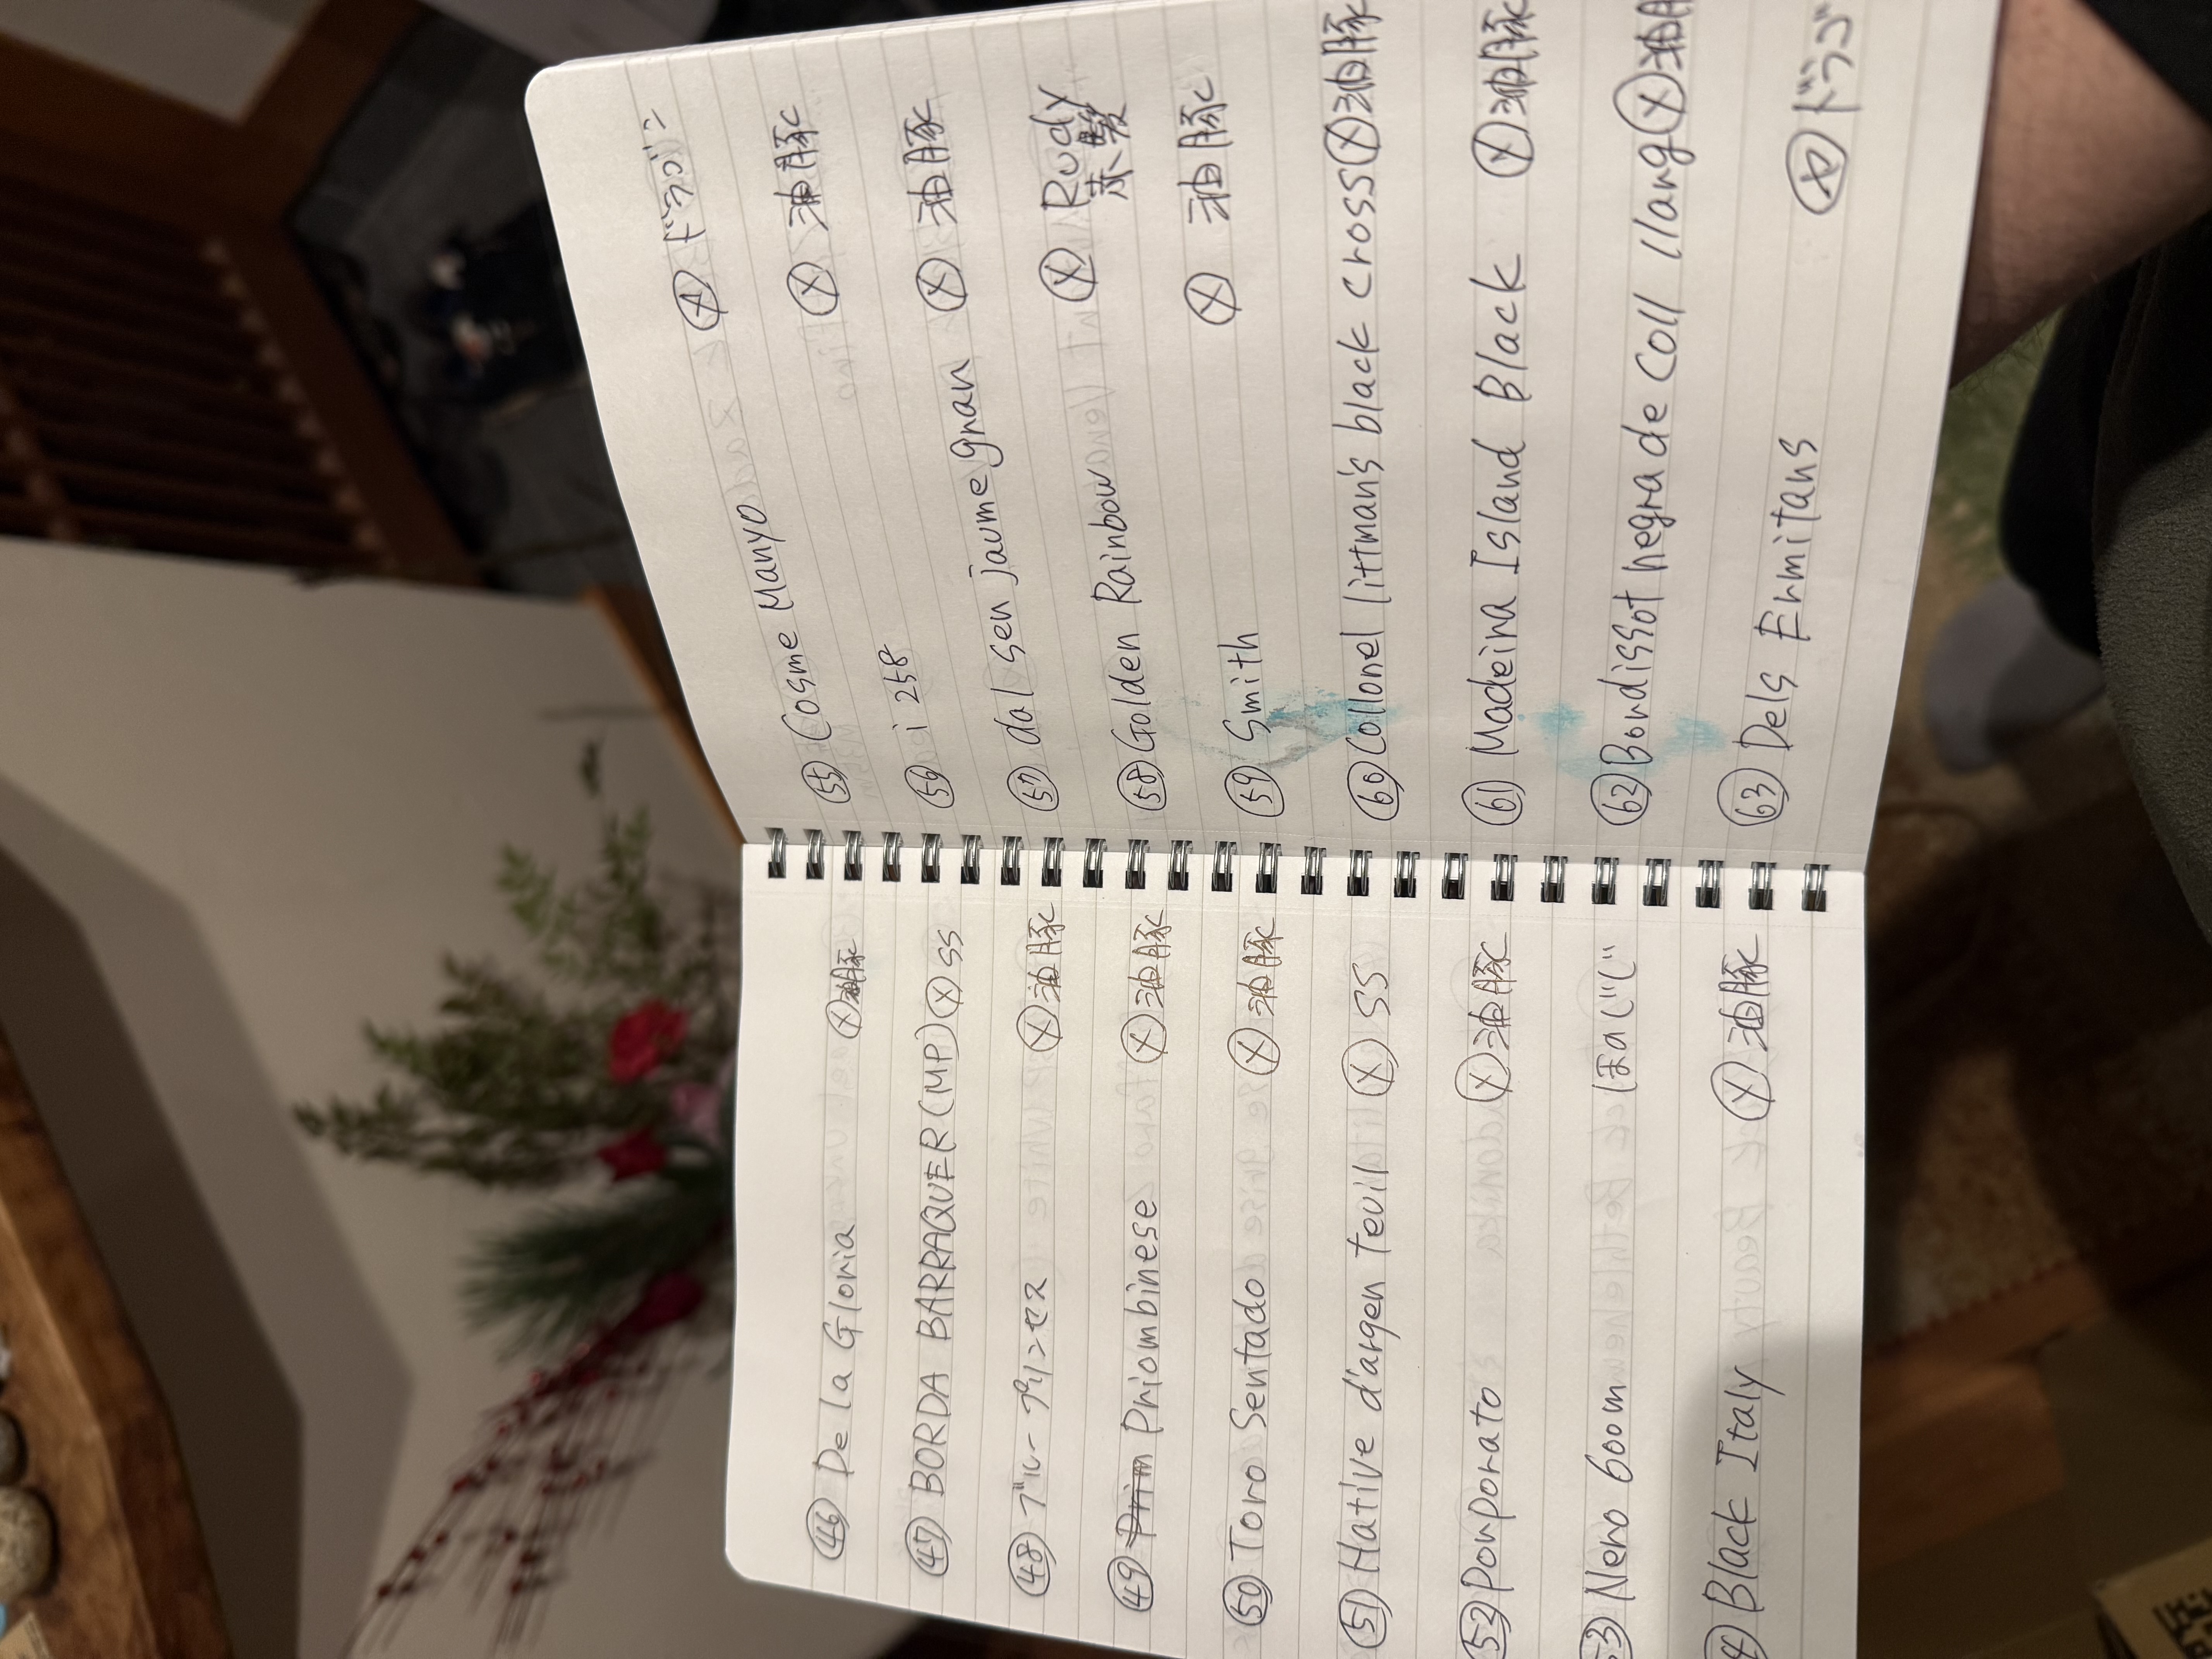 ㊻ De la Gloria ⓧ油豚
㊼ BORDA BARRAQUER(MP) ⓧ SS
㊽ ブループリンセス ⓧ油豚
㊾ Prim Priombinese ⓧ油豚
㊿ Toro Sentado ⓧ油豚
51 Hative d'argen teuil ⓧ SS
52 Ponporato ⓧ油豚
53 Nero 600m
4 Black Italy ⓧ油豚
55 Cosme Manyo ⓧ ドラゴン
56 i 258 ⓧ 油豚
57 dal sen jaume gran ⓧ 油豚
58 Golden Rainbow ⓧ Rudy
59 Smith ⓧ 油豚
60 Collonel littman's black cross ⓧ油豚
61 Madeira Island Black ⓧ油豚
62 Bordissot negra de Coll llarg ⓧ油豚
63 Dels Ermitans ⓧ ドラゴ